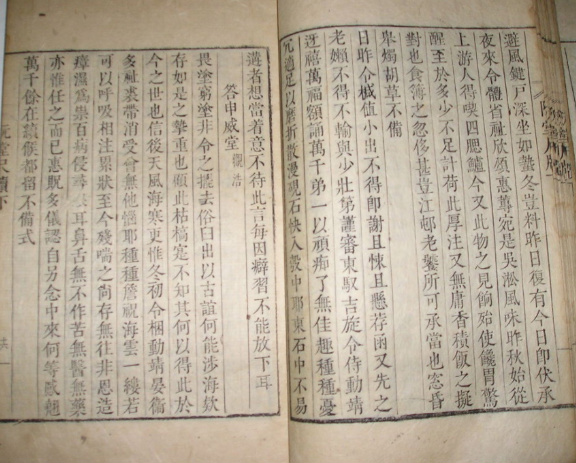 避風鍵戶深坐如蟄冬豈料昨日復有今日卽伏承
夜來令體省融欣頌惠蓴宛是吳淞風味昨秋始從
上游人得喫四腮鱸今又此物之見餉殆使饞胃驚
醒至於多少不足計荷此厚注又無庸香積飯之擬
對也食簿之忽侈甚豈江邨老饕所可承當也窓昏
呼燭胡草不備
日昨令椷值小出不得卽謝且悚且懸荐函又先之
老嬾不得不輸與少壯第謹審東馭吉旋令侍動靖
迓禧萬福頌誦萬千弟一以頑痴了無佳趣種種憂
冗適足以磨折散漫硯石快入殼中耶東石中不易
遘者想當着意不待此言每因癖習不能放下耳
答申威堂 觀浩
畏塗窮塗非今之握去俗臼出以古誼何能涉海欸
存如是之摯重也顧此枯槁寔不知其何以得此於
今之世也信後天風海寒更惟冬初令梱動靖晏衞
多祉裘帶消受會無他惱耶種種詹祝海雲一綫若
可以呼吸相注累狀至今殘喘之尙存無往非恩造
瘴濕爲祟百病侵尋 耳鼻舌無不作苦無醫無藥
亦惟任之而已惠貺多儀認自另念中來何等感戢
萬千份在續候都留不備式
阮堂尺牘下